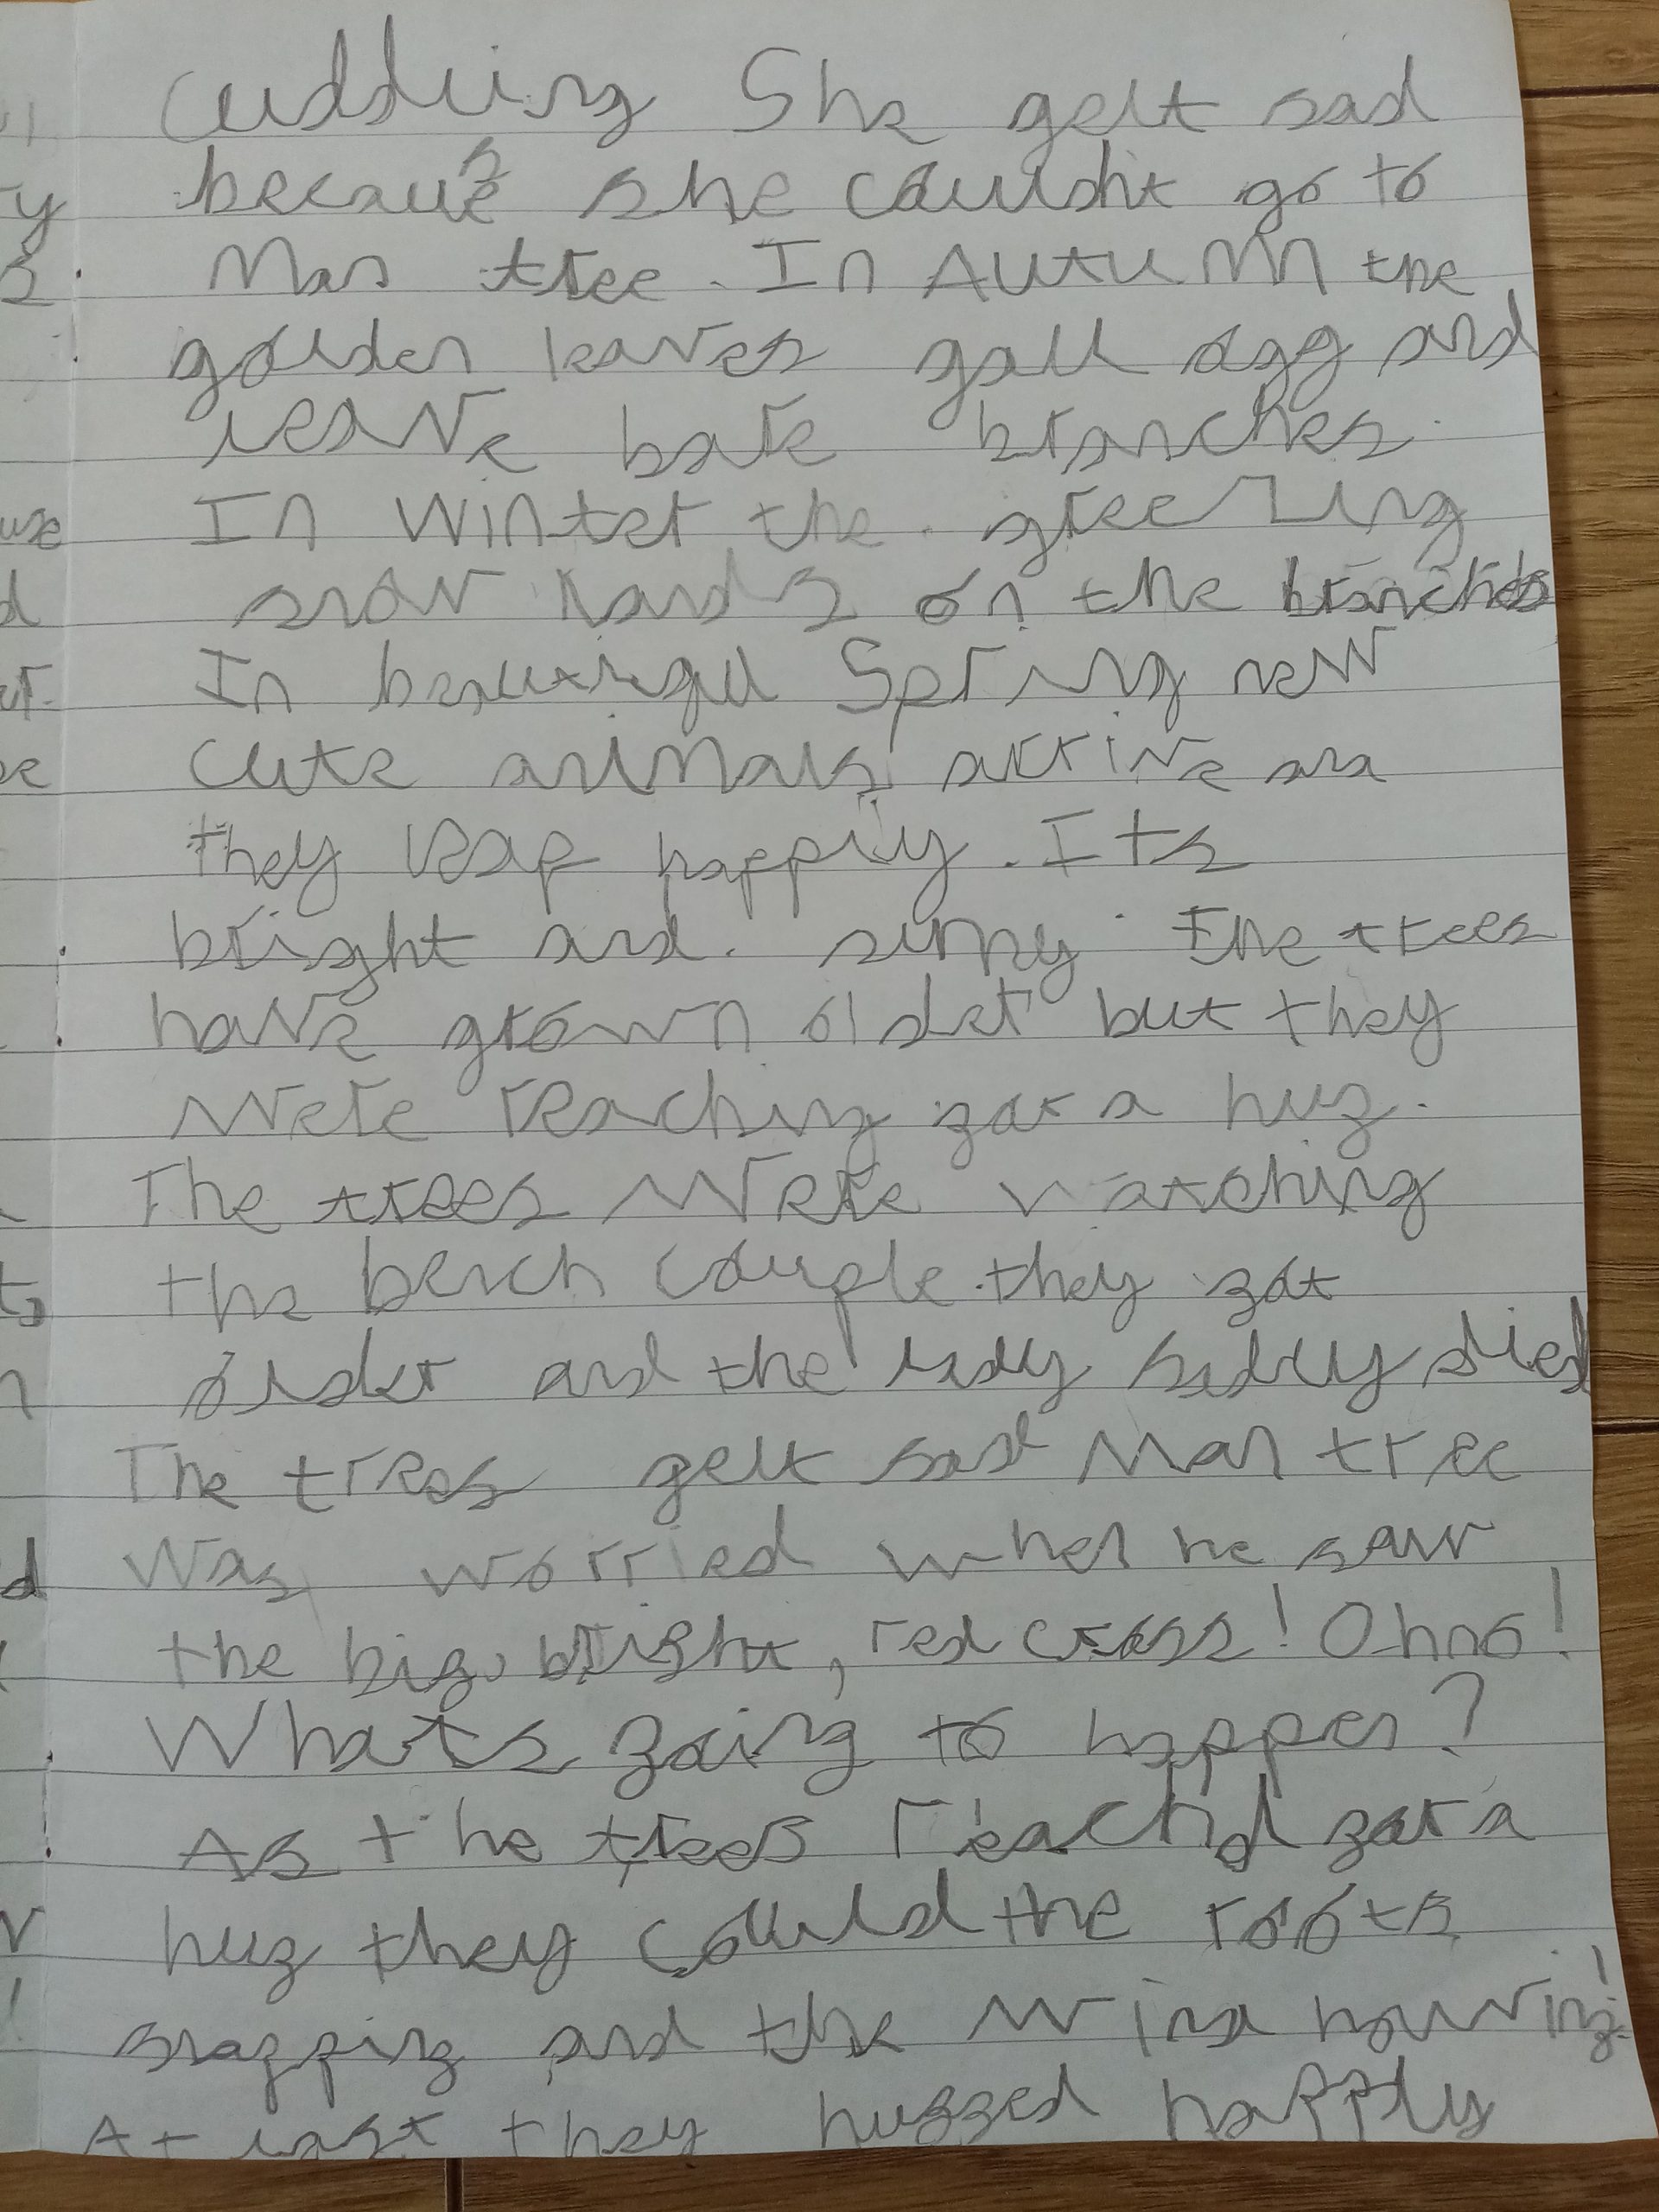 cuddling She felt sad
because she couldnt go to
Man tree. In Autumn the
golden leaves fall off and
leave bare branches.
In Winter the freezing
snow lands on the branches
In beautiful Spring new
cute animals arrive and
they leap happily. Its
bright and sunny. The trees
have grown older but they
were reaching for a hug.
The trees were watching
the bench couple. they got
older and the lady sadly died
The trees felt sad Man tree
was worried when he saw
the big, bright, red cross! Oh no!
What's going to happen?
As the trees reachd for a
hug they could the roots
snapping and the wind howling!
At last they hugged happly